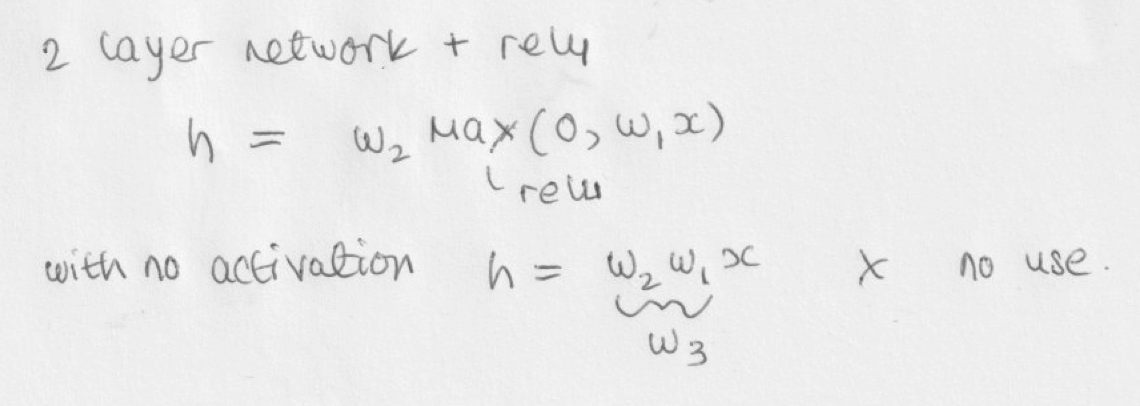 2 layer network + relu
h = w₂ Max(0, w₁x)
relu
with no activation h = w₂ w₁ x × no use.
w₃